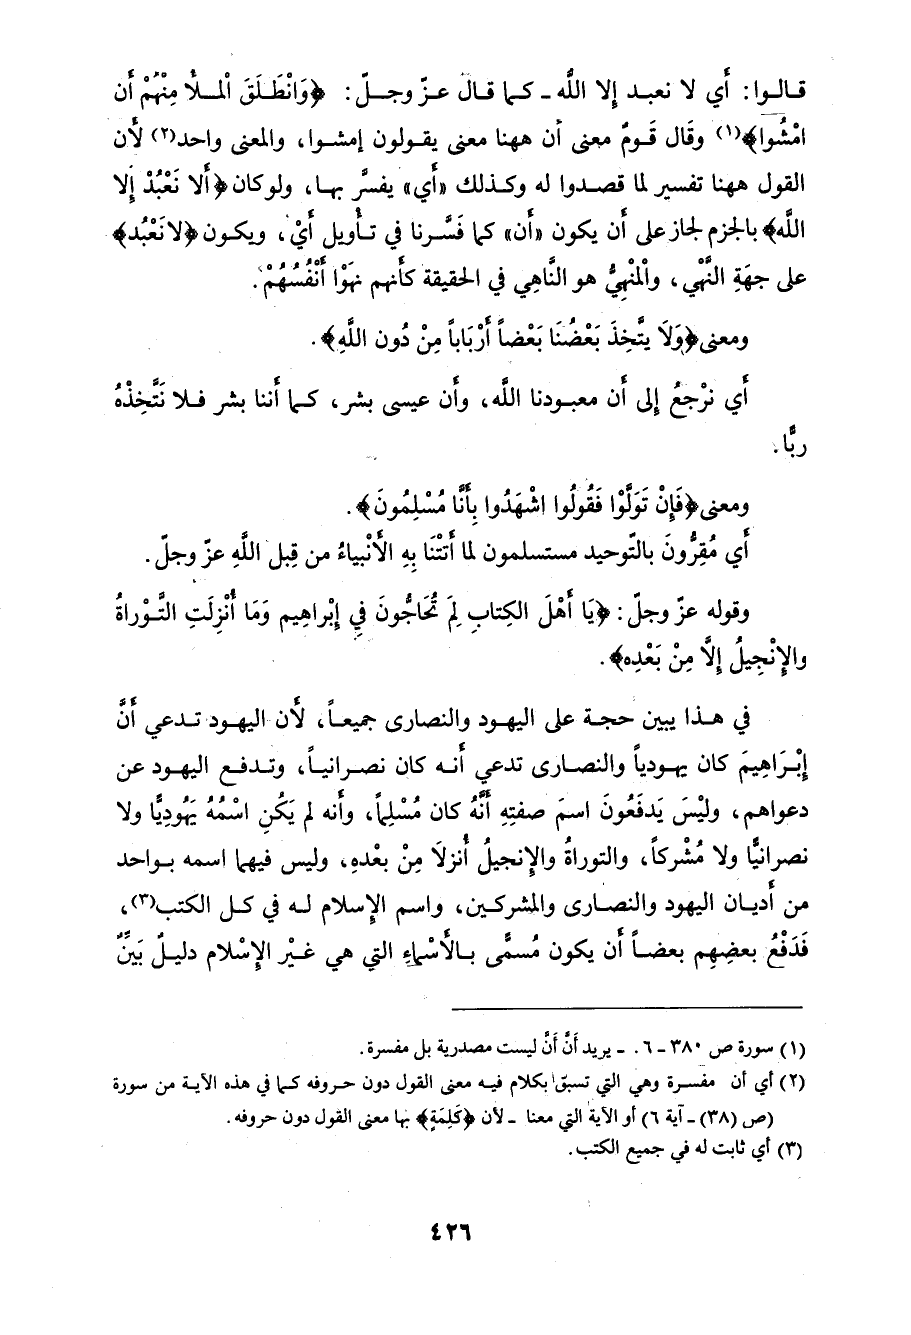 قالوا: أَي لا نعبد إلا اللَّه ـ كما قال عزّ وجلّ: ﴿وَانْطَلَقَ الْملأُ مِنْهُمْ أَن
امْشُوا﴾(١) وقَال قَومٌ معنى أَن ههنا معنى يقولون إمشوا، والمعنى واحد(٢) لأن
القول ههنا تفسير لما قصدوا له وكذلك «أَي» يفسَّر بها، ولو كان ﴿أَلا نَعْبُدْ إِلا
اللَّه﴾ بالجزم لجاز على أَن يكون «أَن» كما فَسَّرنا في تأويل أَيْ، ويكون ﴿لا نَعْبُد﴾
على جهَةِ النَّهْي، والْمنْهِيُّ هو النَّاهِي في الحقيقة كأنهم نهَوْا أَنْفُسُهُمْ.
ومعنى ﴿وَلَا يتَّخِذَ بَعْضُنَا بَعْضاً أَرْبَاباً مِنْ دُون اللَّهِ﴾.
أَي نرْجعُ إلى أَن معبودنا اللَّه، وأَن عيسى بشر، كما أَننا بشر فلا نَتَّخِذْهُ
ربًّا.
ومعنى ﴿فَإِنْ تَوَلَّوْا فَقُولُوا اشْهَدُوا بِأَنَّا مُسْلِمُونَ﴾.
أَي مُقِرُّونَ بالتّوحيد مستسلمون لما أَتتْنَا بِهِ الأَنْبياءُ من قِبل اللَّهِ عزّ وجلّ.
وقوله عزّ وجلّ: ﴿يَا أَهْلَ الكِتابِ لِمَ تُحَاجُّونَ فِي إبْراهِيم وَمَا أُنْزِلَتِ التَّوْراةُ
والإِنْجيلُ إلَّا مِنْ بَعْدِه﴾.
في هذا يبين حجة على اليهود والنصارى جميعاً، لأَن اليهود تدعي أَنَّ
إبْرَاهِيمَ كان يهودياً والنصارى تدعي أَنه كان نصرانياً، وتدفع اليهود عن
دعواهم، وليْسَ يَدفَعُونَ اسمَ صفتِهِ أَنَّهُ كان مُسْلِماً، وأنه لم يَكُنِ اسْمُهُ يَهُودِيًّا ولا
نصرانيًّا ولا مُشْركاً، والتوراةُ والإنجيلُ أُنزلَا مِنْ بعْدِهِ، وليس فيهما اسمه بواحد
من أَديان اليهود والنصارى والمشركين، واسم الإسلام له في كل الكتب(٣)،
فَدَفْعُ بعضِهِم بعضاً أَن يكون مُسمًّى بالأَسْماءِ التي هي غيْر الإسْلام دليلٌ بَيِّنٌ
(١) سورة ص ٣٨٠ ـ ٦. ـ يريد أَنَّ أَنَّ ليست مصدرية بل مفسرة.
(٢) أي أن مفسرة وهي التي تسبق بكلام فيه معنى القول دون حروفه كما في هذه الآية من سورة
(ص (٣٨) ـ آية ٦) أو الآية التي معنا ـ لأن ﴿كَلِمَةٍ﴾ بها معنى القول دون حروفه.
(٣) أي ثابت له في جميع الكتب.
٤٢٦